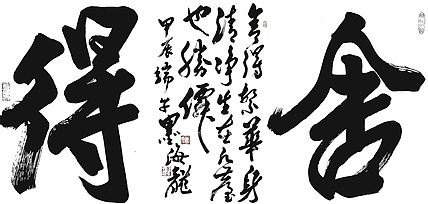 舍
舍得繁華身
清淨生在凡塵
也勝僊
甲辰端午墨海龍
得